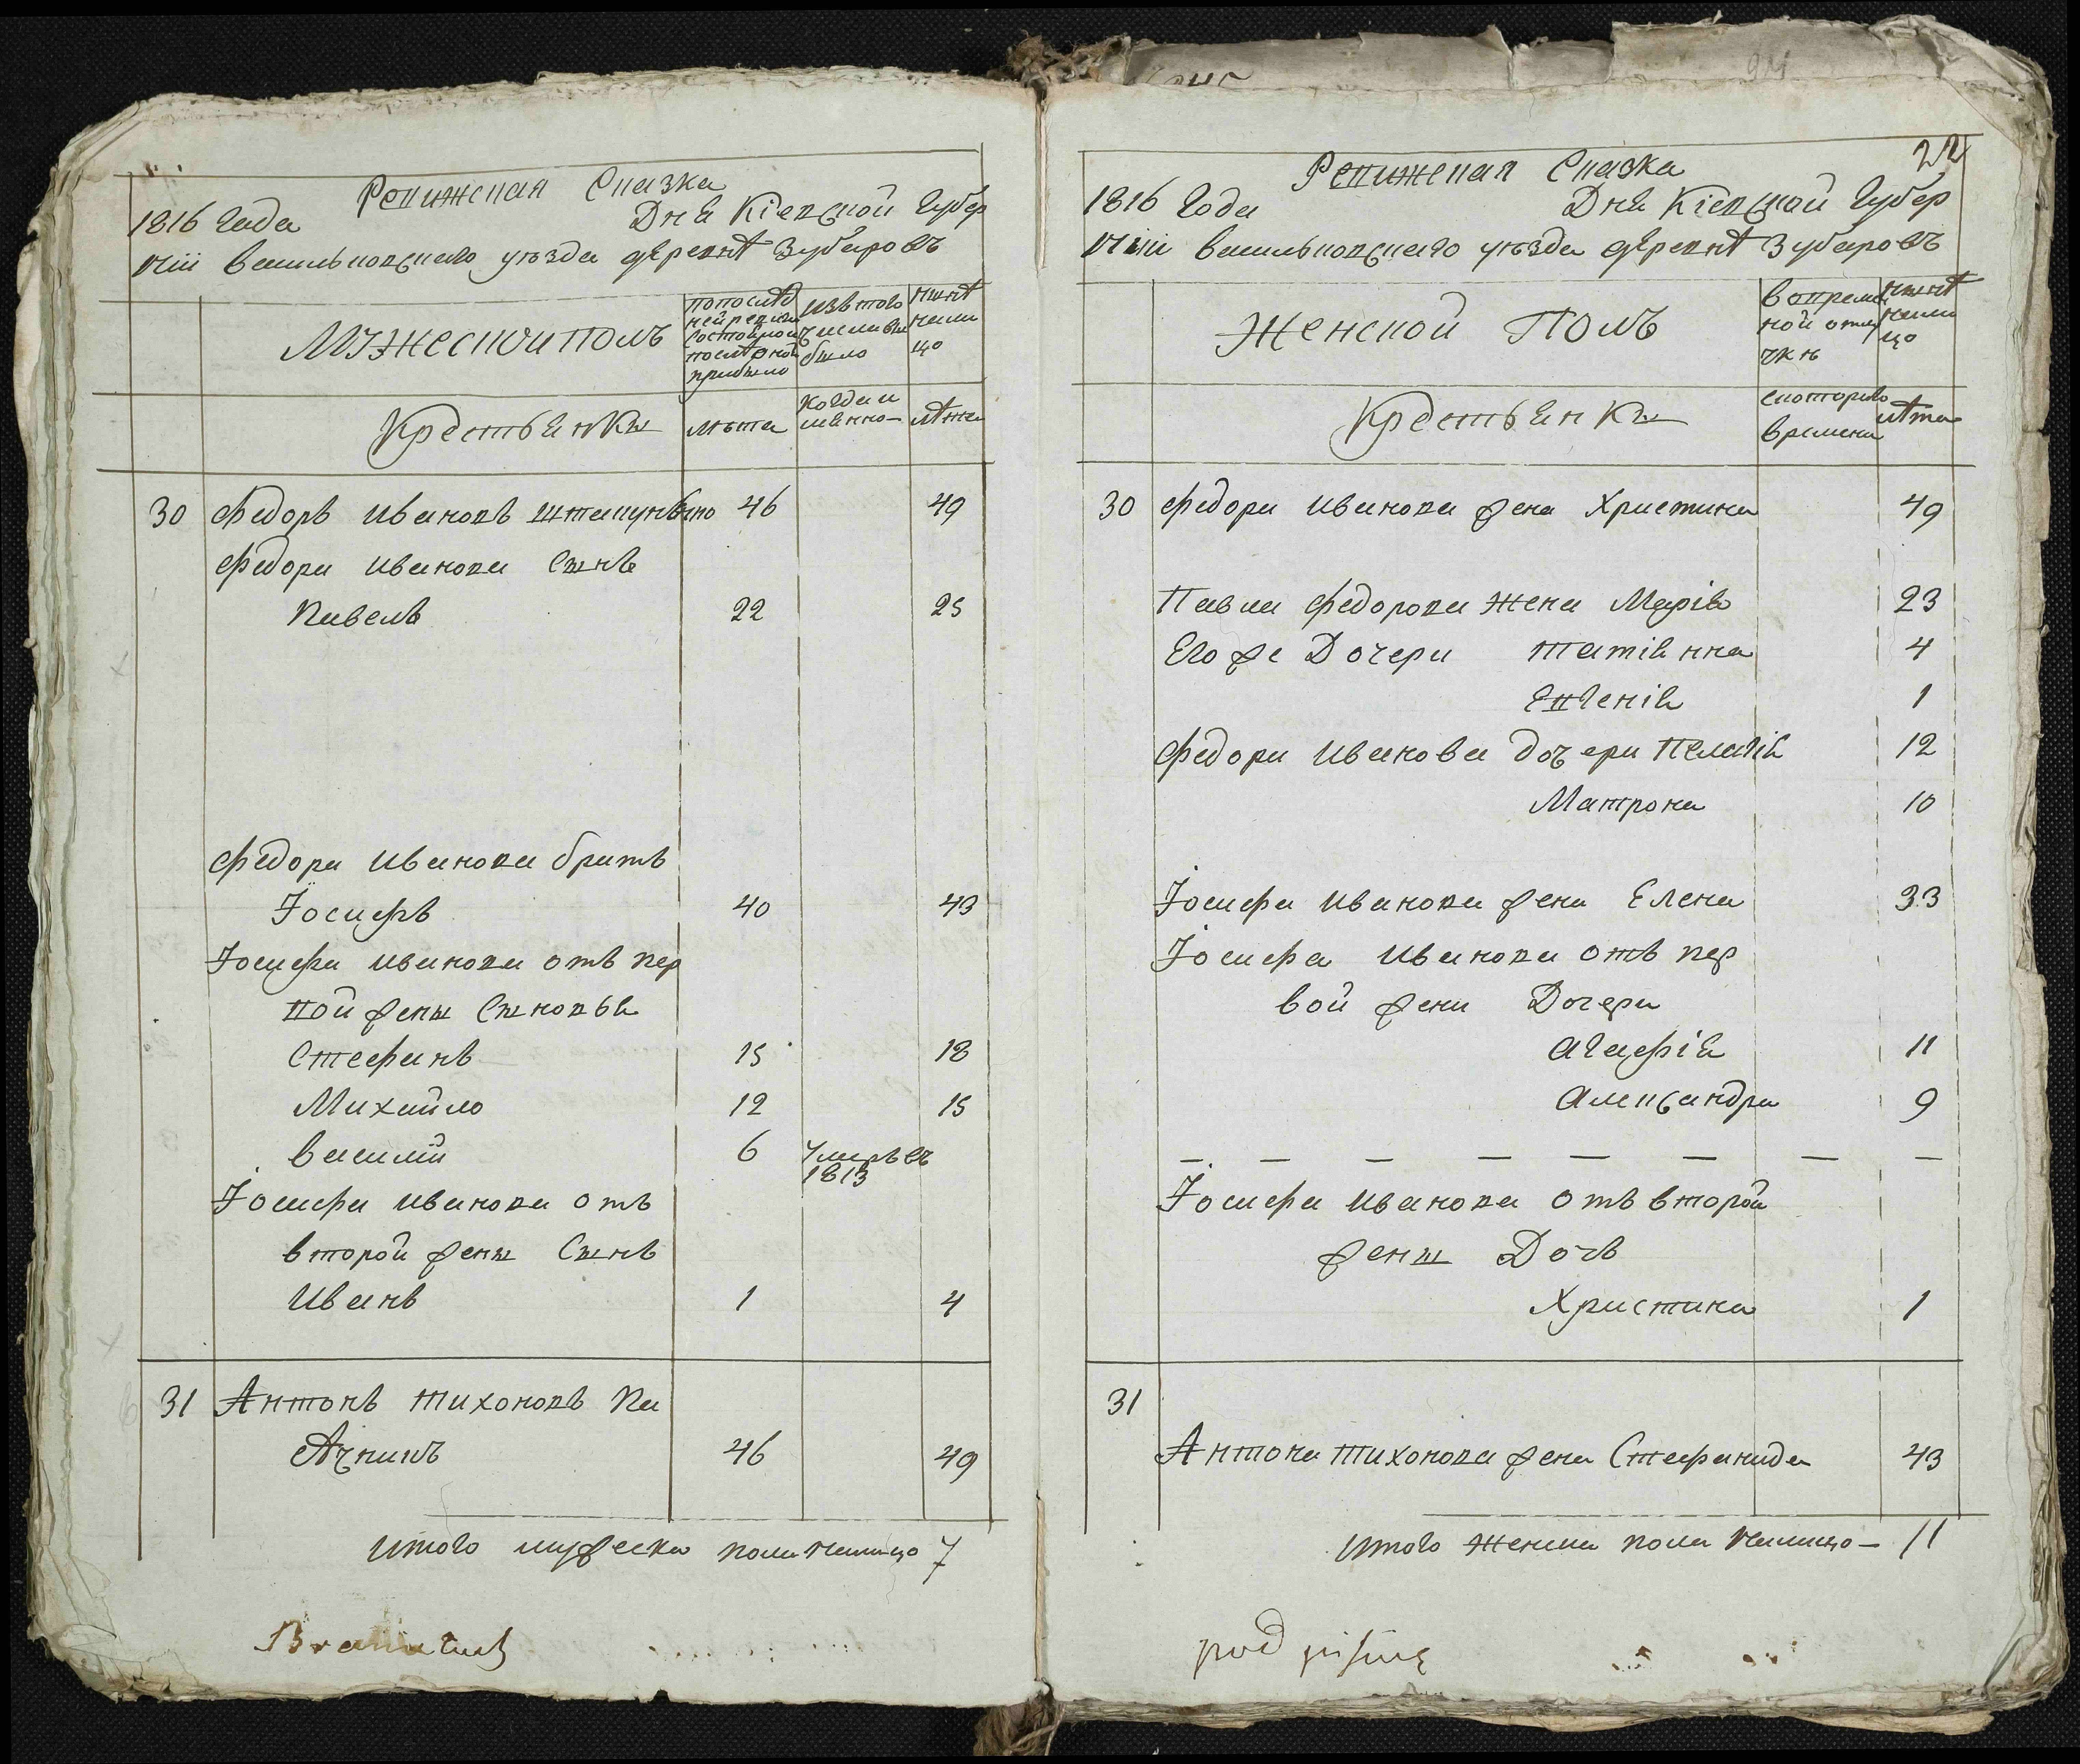 Ревижская Сказка
1816 Года Дня Кіевской Губер
ніи васильковскаго уѣзда деревнѣ Зубаровъ
Мужеской полъ
попослѣд ней ревизіи состояло и послѣ оной прибыло
изъ того числа вы было
нынѣ нали цо
Крестьянкы
лѣта
когда и менно
лѣта
30 Федоръ Ивановъ 46 49
Федора Иванова Сынъ
Павелъ 22 25
Федора Иванова братъ
Іосифъ 40 43
Іосифа Иванова отъ пер
вой жены Сыновья
Стефанъ 15 18
Михайло 12 15
Василій 6 Умеръ въ 1813
Іосифа Иванова отъ
второй жены Сынъ
Иванъ 1 4
31 Антонъ Тихоновъ
46 49
Итого мужеска пола налицо 7
22
Ревижская Сказка
1816 Года Дня Кіевской Губер
ніи васильковскаго уѣзда деревнѣ Зубаровъ
Женской Полъ
вовремен ной отлу чкѣ
нынѣ нали цо
Крестьянкы
скоторого времени
лѣта
30 Федора Иванова жена Христина 49
Павла Федорова Жена Марія 23
Его же Дочери Татіянна 4
Евгенія 1
Федора Иванова дочери Пелагія 12
Матрона 10
Іосифа Иванова жена Елена 33
Іосифа Иванова отъ пер
вой жени Дочери
Агафія 11
Александра 9
— — — — — — — —
Іосифа Иванова отъ второй
жены Дочь
Христина 1
31
Антона Тихонова жена Стефанида 43
Итого женска пола налицо — 11